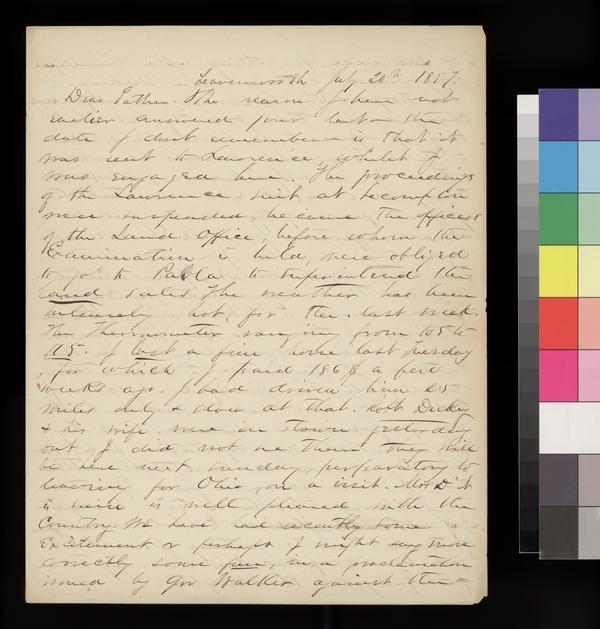 Leavenworth July 20th 1857.
Dear Father. The reason I have not
earlier answered your last – the
date I dont remember – is that it
was sent to Lawrence, whilst I
was engaged here. The proceedings
of the Lawrence suit at Lecompton
were suspended, because the officers
of the Land Office, before whom the
Examination is held, were obliged
to go to Paola to superintend the
land sales. The weather has been
intensely hot, for the last week.
The Thermometer ranging from 105 to
115. I lost a fine horse last Tuesday
, for which I paid 186$ a few
weeks ago. I had driven him 25
miles only & slow at that. Dickey
& his wife were in town yesterday
but I did not see them they will
be here next Sunday, preparatory to
leaving for Ohio, on a visit. Mrs D
is well pleased with the
Country. We have had recently some
Excitement or perhaps I might say more
correctly some fun, in a proclamation
issued by Gov Walker against the =